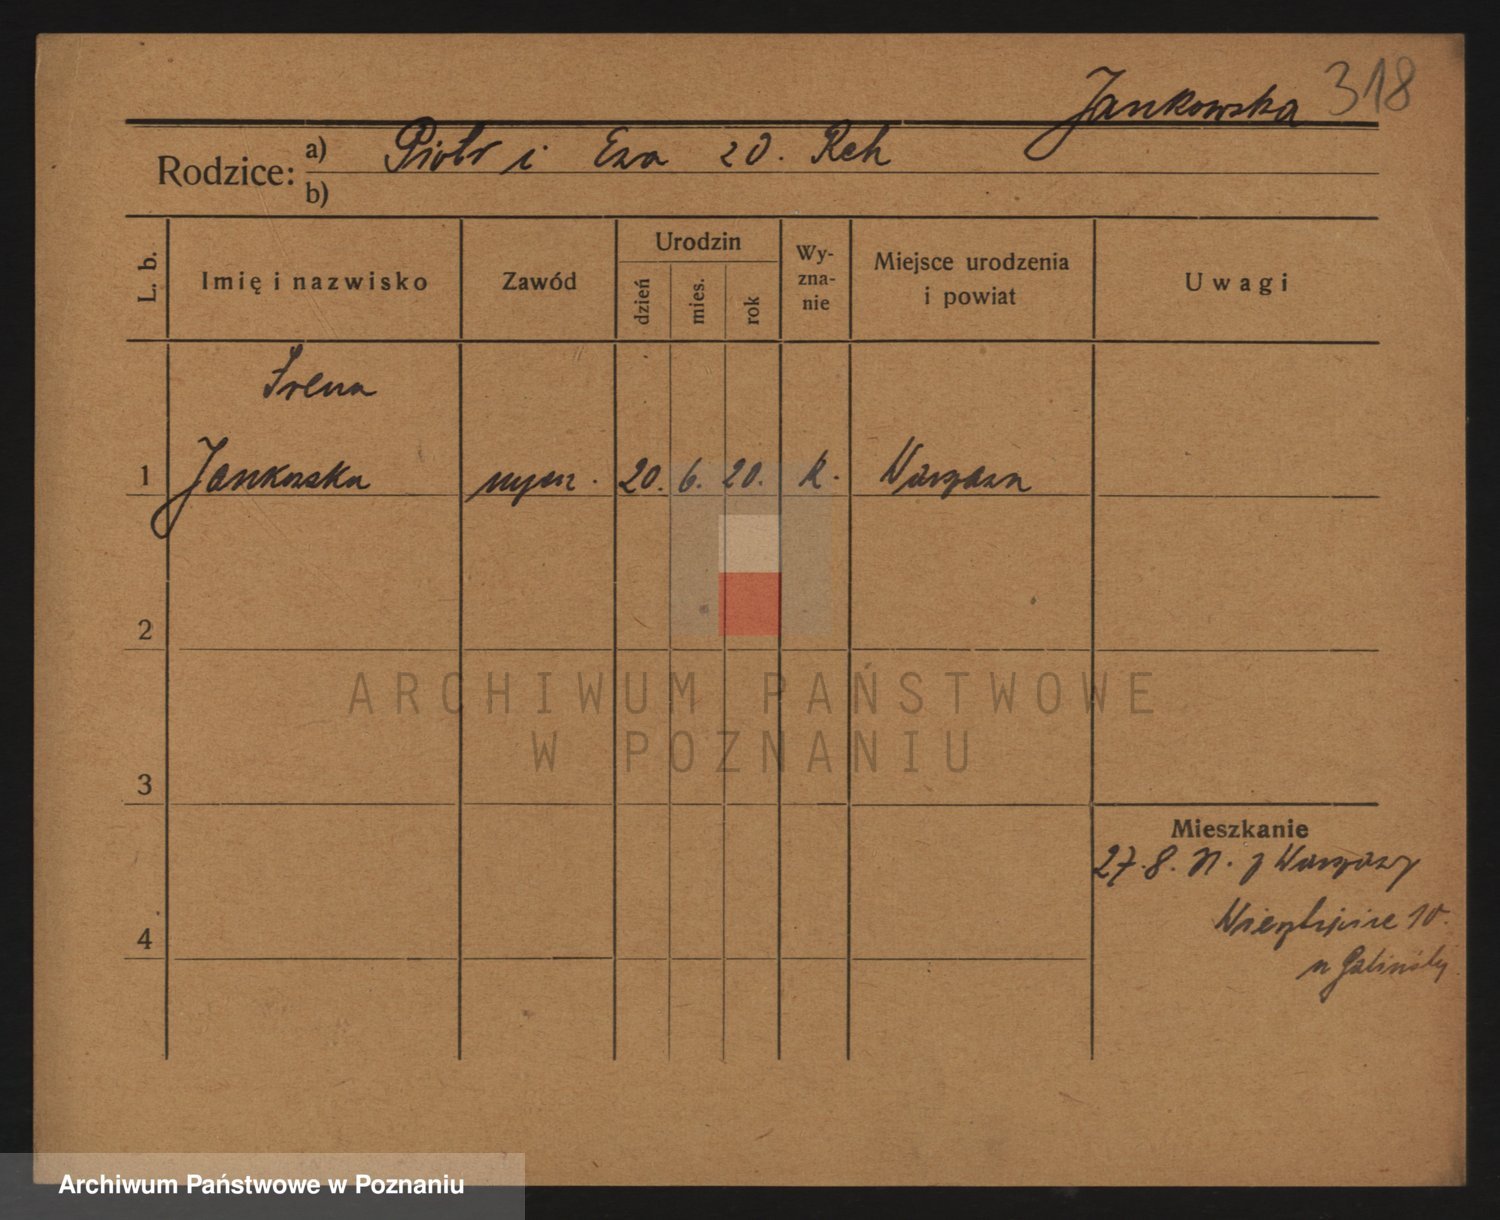 Jankowska 318
Rodzice: a) Piotr i Ewa zd. Reh
b)
L. b.
Imię i nazwisko
Zawód
Urodzin
dzień
mies.
rok
Wy-
zna-
nie
Miejsce urodzenia
i powiat
Uwagi
Irena
1 Jankowska 20. 6. 20. k. Warszawa
2
3
4
Mieszkanie
27.8. z Warszawy
10.
ARCHIWUM PAŃSTWOWE
W POZNANIU
Archiwum Państwowe w Poznaniu